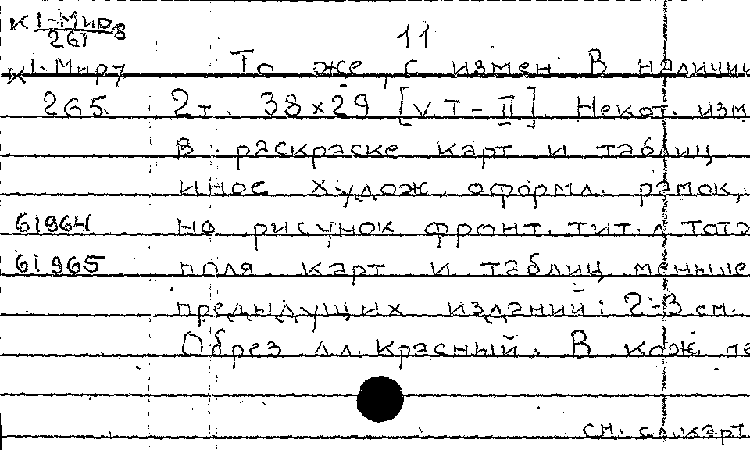 К 1-Мир 8
261
11
К 1-Мир 7 То же, с измен В наличии
265 2т. 38×29 [V.T-II] Некот. изм
в раскраске карт и таблиц
иное худож. оформл. рамок,
61964 но рисунок фронт. тит. л тот
61965 поля карт и таблиц меньше
предыдущих изданий: 2-3 см.
Обрез лл. красный. В кож. пе
см. сл. карт